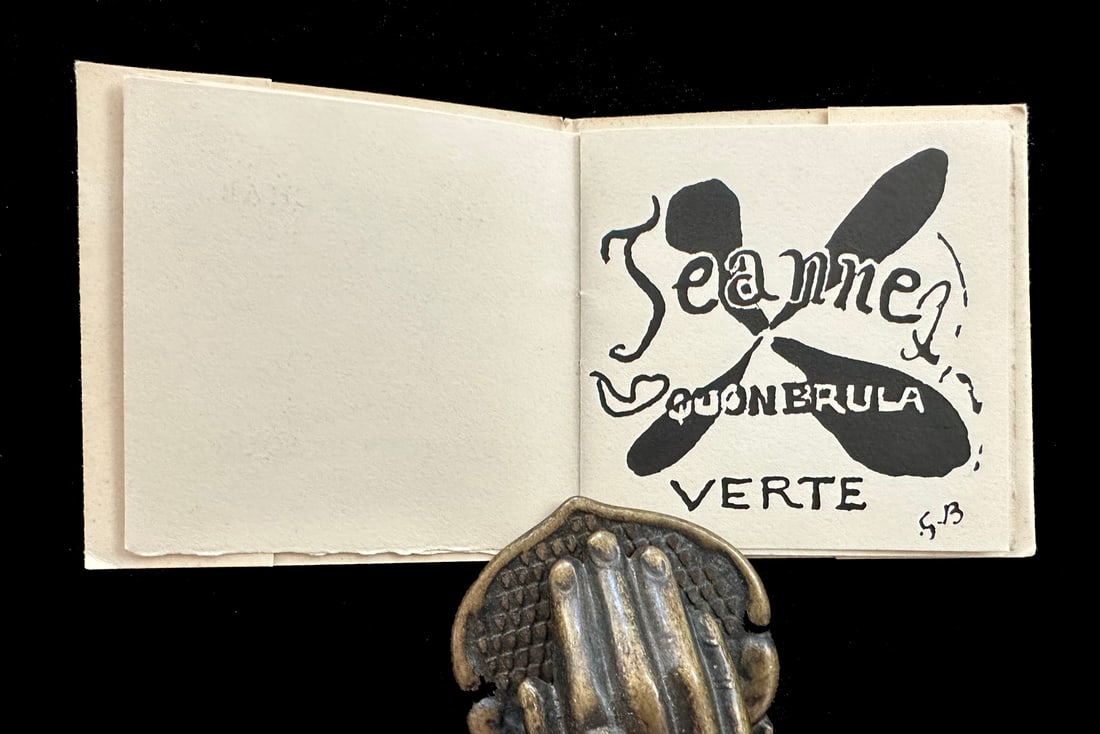 Jeanne
QUON BRULA
VERTE
G-B